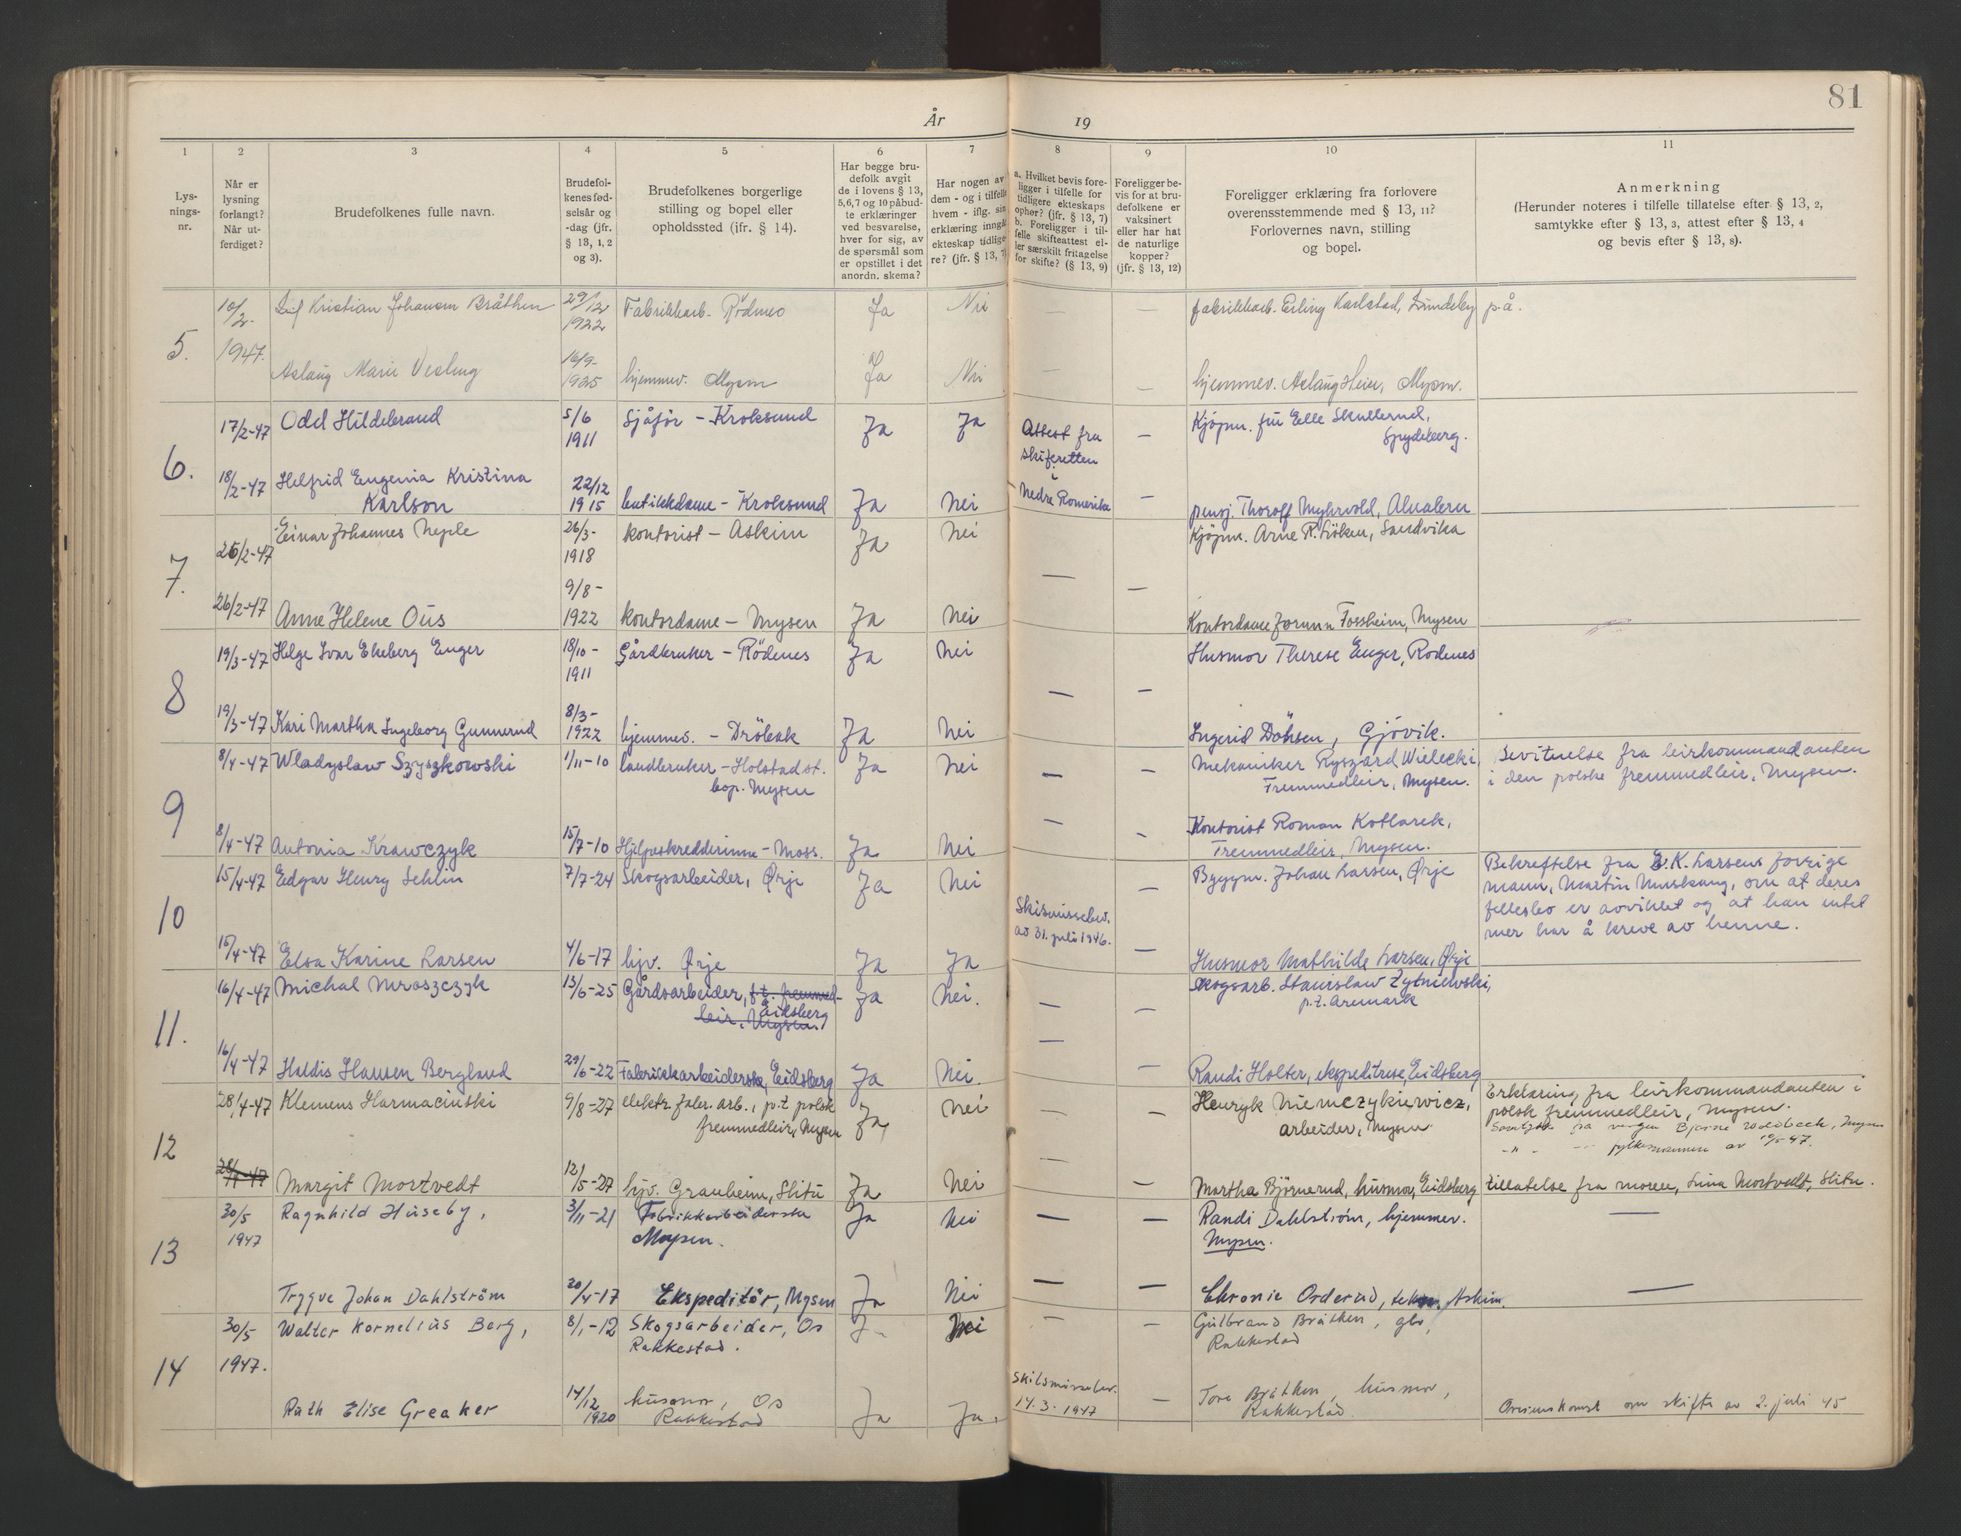 81
År 19
1 2 3 4 5 6 7 8 9 10 11
Lys-
nings-
nr.
Når er
lysning
forlangt?
Når ut-
ferdiget?
Brudefolkenes fulle navn.
Brudefol-
kenes fød-
selsår og
-dag (jfr.
§ 13, 1, 2
og 3).
Brudefolkenes borgerlige
stilling og bopel eller
opholdssted (jfr. § 14).
Har begge bru-
defolk avgit
de i lovens § 13,
5,6,7 og 10 påbud-
te erklæringer
ved besvarelse,
hver for sig, av
de spørsmål som
er opstillet i det
anordn. skema?
Har nogen av
dem - og i tilfelle
hvem - iflg. sin
erklæring inngått
ekteskap tidlige-
re? (jfr. § 13, 7)
a. Hvilket bevis fore-
ligger i tilfelle for
tidligere ekteskaps
ophør? (jfr. § 13, 7)
b. Foreligger i til-
felle skifteattest el-
ler særskilt fritagelse
for skifte? (§ 13, 9)
Foreligger be-
vis for at bru-
defolkene er
vaksinert
eller har hat
de naturlige
kopper?
(jfr. § 13, 12)
Foreligger erklæring fra forlovere
overensstemmende med § 13, 11?
Forlovernes navn, stilling
og bopel.
Anmerkning
(Herunder noteres i tilfelle tillatelse efter § 13, 2,
samtykke efter § 13, 3, attest efter § 13, 4
og bevis efter § 13, 8).
5. 10/2- Kristian Johansen Bråthen 29/12 Fabrikkarb. Rödnes Ja Nei — — fabrikkarb. Erling Karlstad, Lundeby p.å.
1922
1947. Aslaug Marie Vesleng 16/9- 1925 hjemmev. Mysen Ja Nei — — hjemmev. Aslaug Heier, Mysen.
6. 17/2-47 Odd Hildebrand 5/6 1911 Sjåför - Kroksund Ja Ja Attest fra — Kjöpm. Elle Skullerud,
skiferetten Spydeberg.
i
18/2-47 Helfrid Eugenia Kristina
Karlson 22/12 1915 butikkdame - Kroksund Ja Nei Nedre Romerike — pensj. Thorolf Myhrvold,
7. 26/2-47 Einar Johannes Neple 26/3- 1918 kontorist - Askim Ja Nei — Kjöpm. Arne R. Löken, Sandvika
26/2-47 Anne Helene Ous 9/8- 1922 kontordame - Mysen Ja Nei — Kontordame Jorunn Fossheim, Mysen
8 19/3-47 Helge Ivar Ekeberg Enger 18/10- 1911 Gårdbruker - Rödenes Ja Nei — — Husmor Therese Enger, Rödenes
19/3-47 Kari Martha Ingeborg Gunnerud 8/3- 1922 hjemmev. - Dröbak Ja Nei Ingerid Döhsen, Gjövik.
9 8/4-47 Wladyslaw Szyszkowski 1/11-10 landbruker - Holstad st.
bop. Mysen Ja Nei — — Mekaniker Ryszard Wielecki,
Fremmedleir, Mysen. Bevitnelse fra leirkommandanten
i den polske fremmedleir, Mysen.
8/4-47 Antonia Krawczyk 15/7-10 Hjelpeskredderinne - Moss. Ja Nei — — Kontorist Roman Kotlarek,
Fremmedleir, Mysen.
10 15/4-47 Edgar Henry Sehlin 7/7-24 Skogsarbeider, Ørje Ja Nei — Byggm. Johan Larsen, Ørje
Bekreftelse fra E.K. Larsens forrige
mann, Martin Murskaug, om at deres
fellesbo er avviklet og at han intet
mer har å kreve av henne.
15/4-47 Elsa Karine Larsen 4/6-17 hjv. Ørje Ja Ja Skilsmissebev.
av 31. juli 1946. — Husmor Mathilde Larsen, Ørje
11. 16/4-47 Michal Mroszczyk 13/6-25 Gårdsarbeider, p.t. fremmed-
leir, Mysen. Eidsberg Ja Nei. — — Skogsarb. Stanislaw Zytniewski,
p.t. Aremark
16/4-47 Haldis Hansen Berglund 29/6-22 Fabrikkarbeiderske, Eidsberg Ja Nei. — — Randi Holter, ekspeditrise, Eidsberg
12 28/4-47 Klemens Harmacinski 9/8-27 elektr. faber. arb., p.t. polsk
fremmedleir, Mysen Ja Nei — — Henryk Niemczykiewicz,
arbeider, Mysen. Erklæring fra leirkommandanten i
polsk fremmedleir, Mysen.
Samtykke fra vergen Bjarne Woldbeck, Mysen
-„- - fylkesmannen av 10/5-47.
28/4-47 Margit Mortvedt 12/5-27 hjv. Grauheim, Slitu Ja Nei — — Martha Björnerud, husmor, Eidsberg tillatelse fra moren, Lina Mortvedt, Slitu.
13 30/5 1947 Ragnhild Huseby, 3/11-21 Fabrikkarbeiderske
Mysen. Ja Nei — — Randi Dahlström, hjemmev.
Mysen. —
Trygve Johan Dahlström 20/4-17 Ekspeditör, Mysen Ja Nei — — Chronie Orderud, Askim. —
14 30/5 1947. Walter Kornelius Berg, 8/1-12 Skogsarbeider, Os
Rakkestad. J- Nei — — Gulbrand Bråthen, gbr,
Rakkestad
Ruth Elise Greaker 14/12 1920 husmor, Os
Rakkestad Ja Ja. Skilsmissebev.
14.3.1947 — Tora Bråthen, husmor,
Rakkestad. Overenskomst om skifte av 2. juli 45